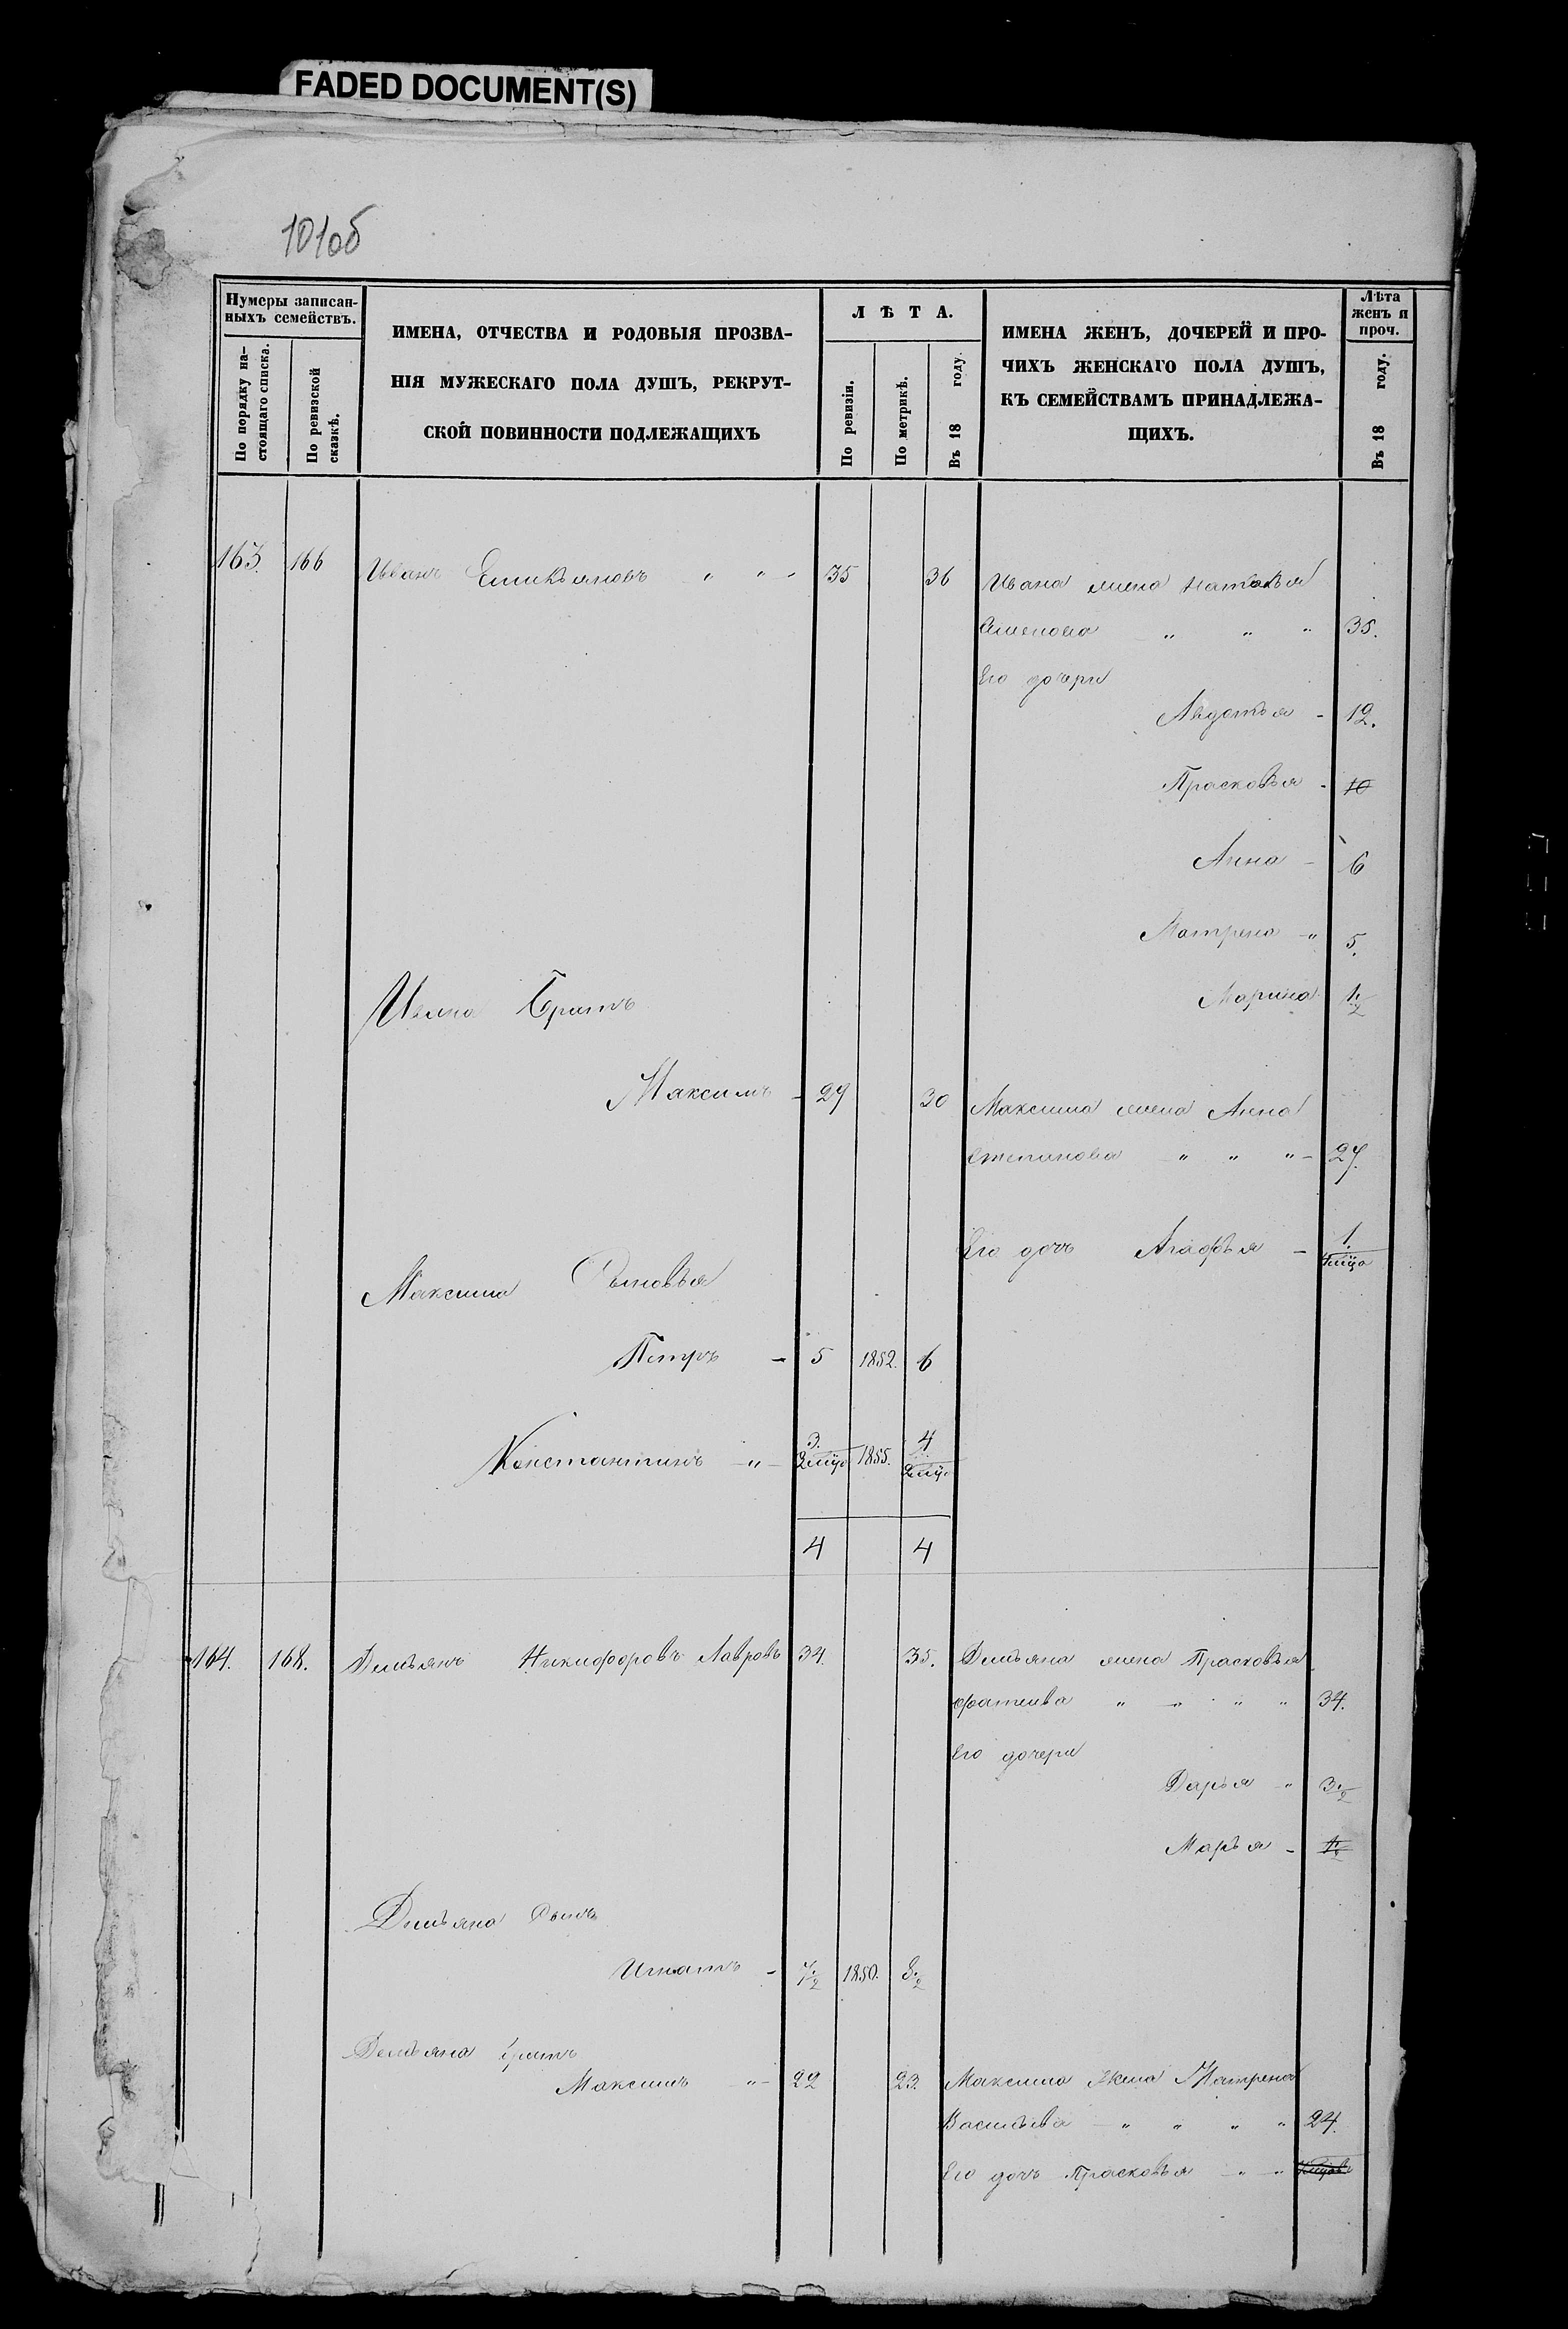 FADED DOCUMENT(S)
101об
Нумеры записан-
ныхъ семействъ.
По порядку на-
стоящаго списка.
По ревизской
сказкѣ.
ИМЕНА, ОТЧЕСТВА И РОДОВЫЯ ПРОЗВА-
НІЯ МУЖЕСКАГО ПОЛА ДУШЪ, РЕКРУТ-
СКОЙ ПОВИННОСТИ ПОДЛЕЖАЩИХЪ
ЛѢТА.
По ревизіи.
По метрикѣ.
Въ 18 году.
ИМЕНА ЖЕНЪ, ДОЧЕРЕЙ И ПРО-
ЧИХЪ ЖЕНСКАГО ПОЛА ДУШЪ,
КЪ СЕМЕЙСТВАМЪ ПРИНАДЛЕЖА-
ЩИХЪ.
Лѣта
женъ и
проч.
Въ 18 году.
163. 166 Иванъ Емильяновъ " " " 35 36 Ивана жена Наталья
" " " 35.
Его дочери
Авдотья - 12.
Прасковья - 10
Анна - 6
Матрена - " 5.
Марина 1 1/2
Ивана Братъ
Максимъ - 29 30 Максима жена Анна
Степанова " " " - 27.
Его дочь Агафья - 1.
Максима Сыновья
Петръ - 5 1852. 6
Константинъ - " - 3. 1855. 4
4 4
164. 168. Демьянъ Никифоровъ Лавровъ 34. 35. Демьяна жена Прасковья
" " " " 34.
Его дочери
Дарья - " 3 1/2
Марья -
Демьяна Сынъ
Игнатъ - 7 1/2 1850. 8 1/2
Демьяна братъ
Максимъ - " - 22 23. Максима жена Матрена
Васильева - " " " " 24.
Его дочь Прасковья " "